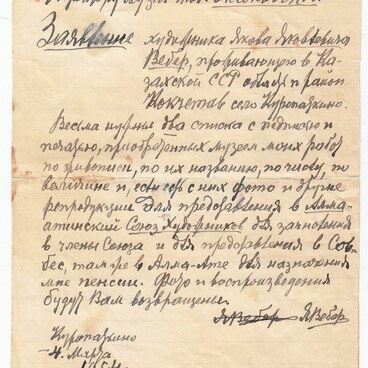 Заявление художника Якова Яковлевича
Вебер, проживающего в Ка-
захской ССР область и район
Кокчетав село Куропаткино.
Весьма нужны два списка с подписью и
печатью, приобретенных музеем моих работ
по живописи, по их названию, по числу, по
величине и, если есть с них фото и другие
репродукции для предоставления в Алма-
атинский Союз Художников для зачисления
в члены Союза и для предоставления в Соб-
бес, там же в Алма-Ате для назначения
мне пенсии. Фото и воспроизведения
будут Вам возвращены.
ЯВебер ЯВебер
Куропаткино
4. Марта